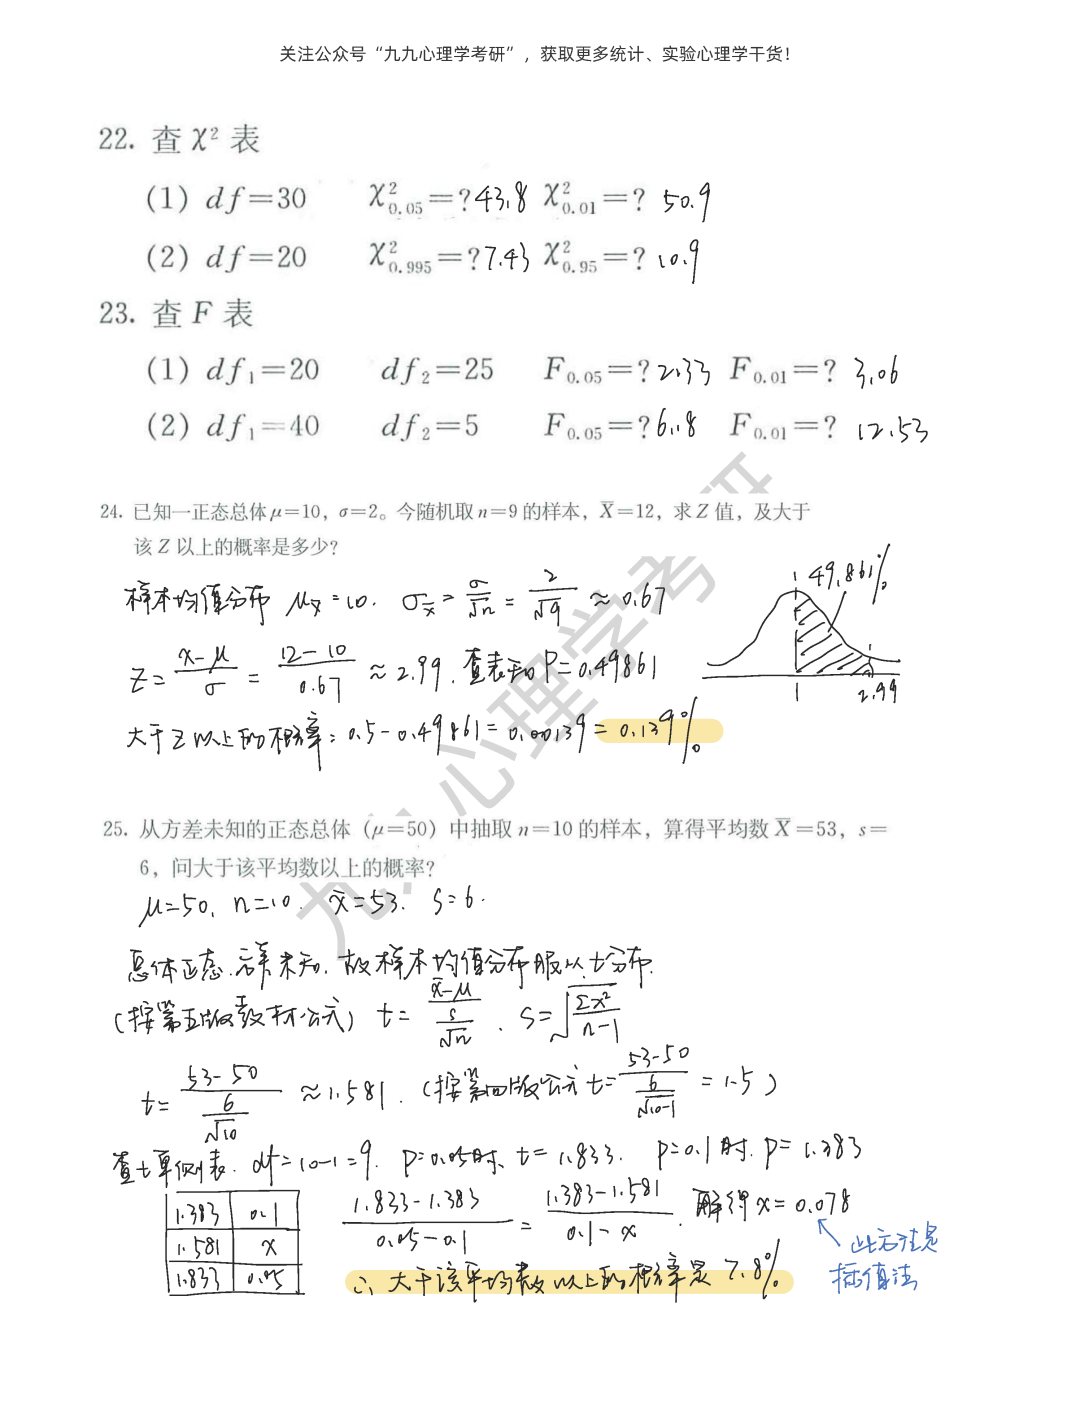 关注公众号“九九心理学考研”，获取更多统计、实验心理学干货！
22. 查 χ² 表
(1) df=30 χ²₀.₀₅=? 43.8 χ²₀.₀₁=? 50.9
(2) df=20 χ²₀.₉₉₅=? 7.43 χ²₀.₉₅=? 10.9
23. 查 F 表
(1) df₁=20 df₂=25 F₀.₀₅=? 2.33 F₀.₀₁=? 3.06
(2) df₁=40 df₂=5 F₀.₀₅=? 6.18 F₀.₀₁=? 12.53
24. 已知一正态总体μ=10，σ=2。今随机取n=9的样本，X̄=12，求Z值，及大于
该Z以上的概率是多少？
样本均值分布 μx̄=10. σx̄=σ/√n=2/√9≈0.67
49.861%
Z=(x-μ)/σ=(12-10)/0.67≈2.99. 查表知P=0.49861
1 2.99
大于Z以上的概率：0.5-0.49861=0.00139=0.139%
25. 从方差未知的正态总体（μ=50）中抽取n=10的样本，算得平均数X̄=53，s=
6，问大于该平均数以上的概率？
μ=50, n=10. x̄=53. S=6.
总体正态.方差未知.故样本均值分布服从t分布.
(按第五版教材公式) t=(x̄-μ)/(s/√n). S=√(Σx²/(n-1))
t=(53-50)/(6/√10)≈1.581. (按第四版公式t=(53-50)/(6/√(10-1))=1.5)
查t单侧表. df=10-1=9. P=0.05时、t=1.833. P=0.1时. P=1.383
1.383 0.1
1.581 x
1.833 0.05
(1.833-1.383)/(0.05-0.1)=(1.383-1.581)/(0.1-x). 解得x=0.078
此方法是
插值法
∴大于该平均数以上的概率是7.8%
九九心理学考研